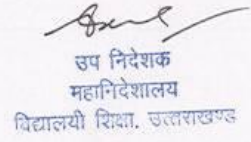 उप निदेशक
महानिदेशालय
विद्यालयी शिक्षा, उत्तराखण्ड